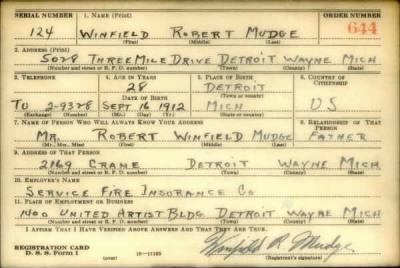 SERIAL NUMBER 1. NAME (Print) ORDER NUMBER
124 WINFIELD ROBERT MUDGE 644
(First) (Middle) (Last)
2. ADDRESS (Print)
5028 THREE MILE DRIVE DETROIT WAYNE MICH
(Number and street or R. F. D. number) (Town) (County) (State)
3. TELEPHONE 4. AGE IN YEARS 5. PLACE OF BIRTH 6. COUNTRY OF CITIZENSHIP
28 DETROIT
DATE OF BIRTH (Town or county)
TO 2-9328 SEPT 16 1912 MICH US
(Exchange) (Number) (Mo.) (Day) (Yr.) (State or country)
7. NAME OF PERSON WHO WILL ALWAYS KNOW YOUR ADDRESS 8. RELATIONSHIP OF THAT PERSON
MR. ROBERT WINFIELD MUDGE FATHER
(Mr., Mrs., Miss) (First) (Middle) (Last)
9. ADDRESS OF THAT PERSON
2169 CRANE DETROIT WAYNE MICH
(Number and street or R. F. D. number) (Town) (County) (State)
10. EMPLOYER'S NAME
SERVICE FIRE INSURANCE CO
11. PLACE OF EMPLOYMENT OR BUSINESS
1400 UNITED ARTIST BLDG. DETROIT WAYNE MICH
(Number and street or R. F. D. number) (Town) (County) (State)
I AFFIRM THAT I HAVE VERIFIED ABOVE ANSWERS AND THAT THEY ARE TRUE.
REGISTRATION CARD Winfield R. Mudge
D. S. S. Form 1 (over) (Registrant's signature)